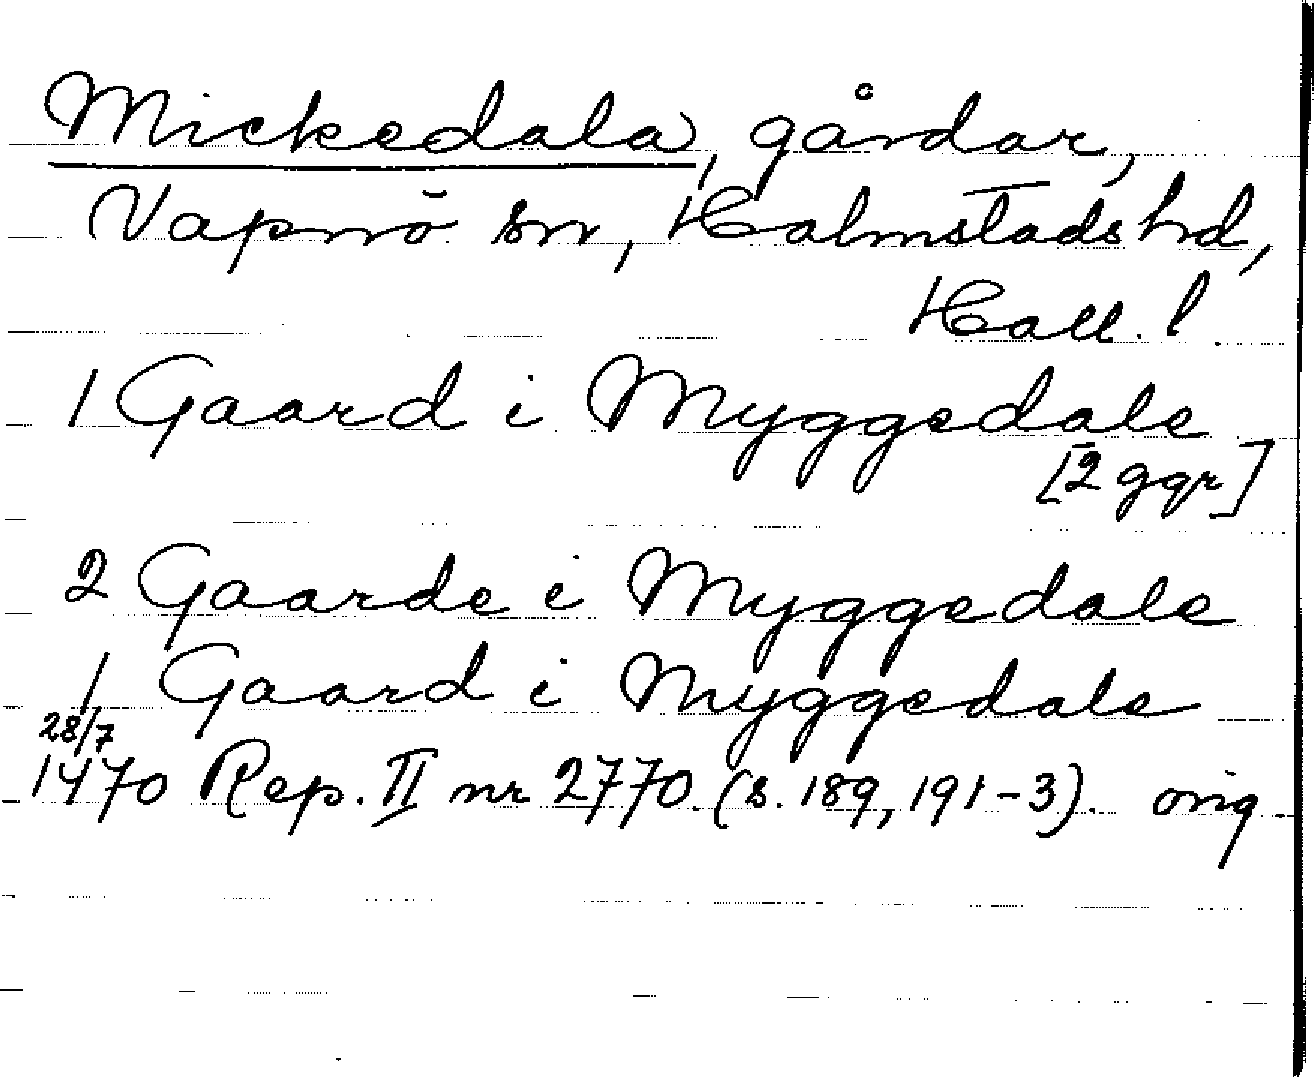 Mickedala, gårdar,
Vapnö sn, Halmstads hd,
Hall. l.
1 Gaard i Myggedale
[2 ggr]
2 Gaarde i Myggedale
1 Gaard i Myggedale
28/7
1470 Rep. II nr 2770 (s. 189, 191-3). orig.